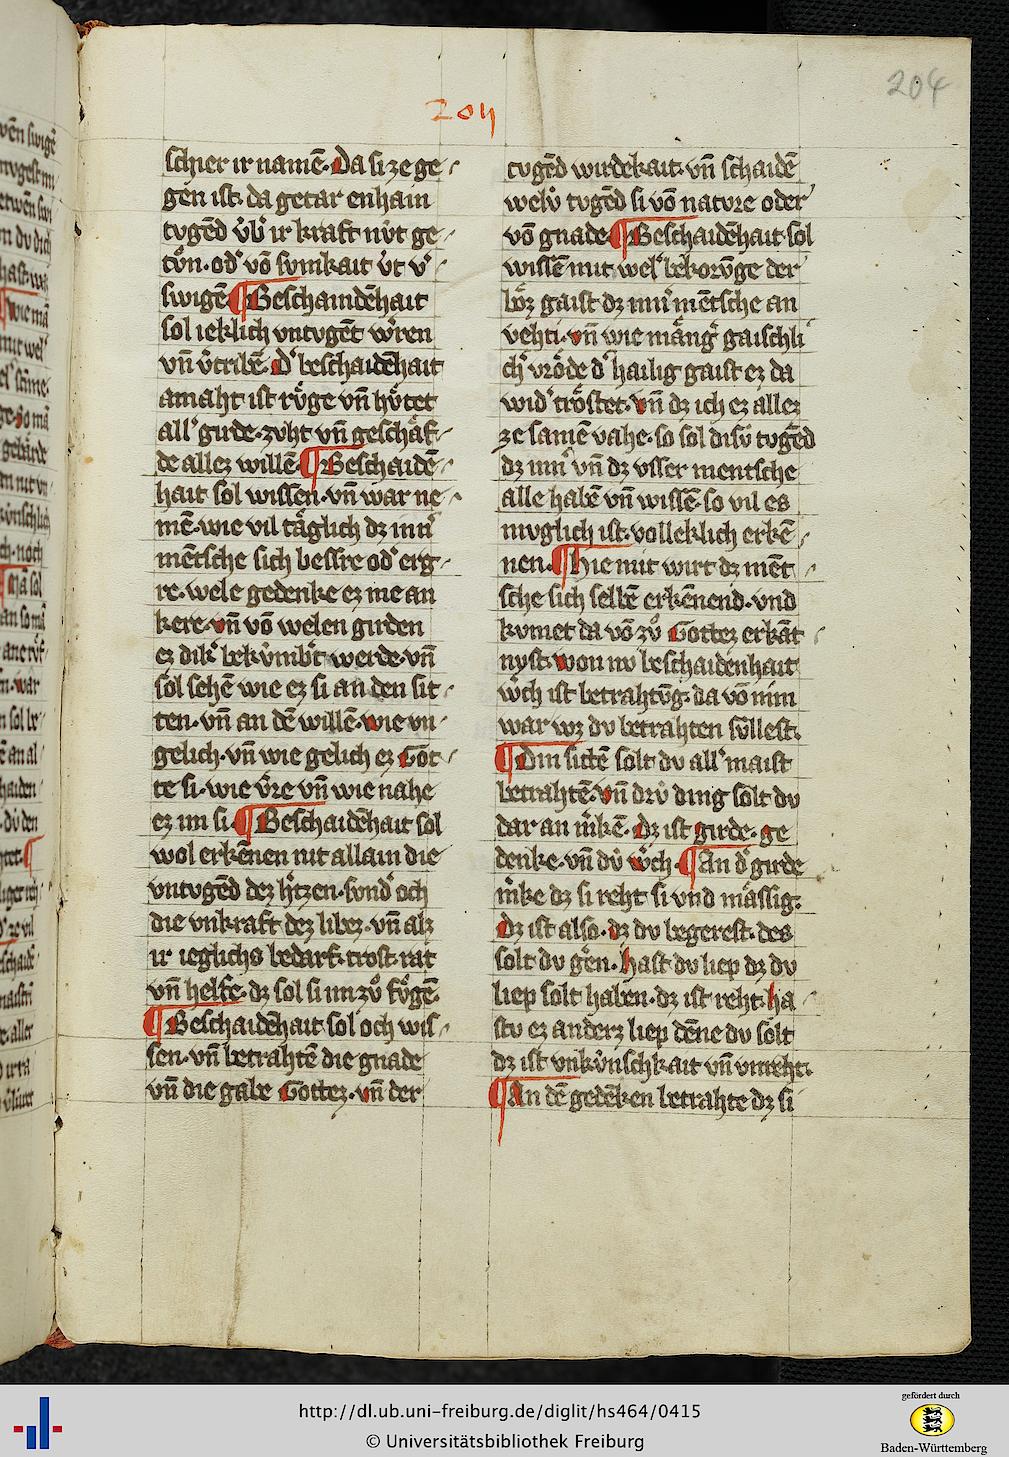 204
204
schier ir namē. Da si ze ge-
gen ist. da getar enhain
tvgēd v̓b̓ ir kraft nv̓t ge-
tv̊n. od̓ vō svmkait v̓t v̓-
swigē ¶ Beschaindēhait
sol ieklich vntvgēt wͤren
vn̄ v̓tribē. d̓ beschaidēhait
amaht ist rv̊ge vn̄ hv̊tet
all̓ girde. zvht vn̄ geschaͤf-
de allez willē. ¶ Beschaidē-
hait sol wissen. vn̄ war ne-
mē. wie vil taͤglich dz inn̓
mētsche sich bessre od̓ erg-
re. wele gedenke ez me an
kere. vn̄ vō welen girden
ez dik̓ bekv̓mb̓t werde. vn̄
sol sehē wie ez si an den sit-
ten. vn̄ an dē willē. wie vn-
gelich. vn̄ wie gelich ez Got-
te si. wie v̓re vn̄ wie nahe
ez im si. ¶ Beschaidēhait sol
wol erkēnen nit allain die
vntvgēd dez h̓tzen. svnd̓ och
die vnkraft dez libez. vn̄ alz
ir ieglichs bedarf. trost. rat
vn̄ helfe. dz sol si im zv̊ fv̊gē.
¶ Beschaidēhait sol och wis-
sen. vn̄ betrahtē die gnade
vn̄ die gabe Gottez. vn̄ der
tvgēd wirdekait. vn̄ schaidē
welv̓ tvgēd si vō natvre oder
vō gnade ¶ Beschaidēhait sol
wissē mit wel̓ bekorv̄ge der
boͤz gaist dz inn̓ mētsche an
vehti. vn̄ wie maͤng̓ gaischli
ch̓ vroͤde d̓ hailig gaist ez da
wid̓ troͤstet. vn̄ dz ich ez allez
ze samē vahe. so sol disv̓ tvgēd
dz inn̓ vn̄ dz vsser mentsche
alle habē vn̄ wissē. so vil es
mvglich ist. volleklich erkē-
nen. ¶ Hie mit wirt dz mēt-
sche sich selbē erkēnend. vnd
kvmet da vō zv̊ Gottez erkāt-
nyst. won nv beschaidenhait
oͮch ist betrahtv̄g. da vō nim
war wz dv betrahten sv̓llest.
¶ Din sittē solt dv all̓ maist
betrahtē. vn̄ drv̓ ding solt dv
dar an m̓kē. dz ist girde. ge
denke. vn̄ dv̓ oͮch. ¶ An d̓ girde
m̓ke dz si reht si vnd maͤssig.
dz ist also. dz dv begerest. des
solt dv gern. hast dv liep dz dv
liep solt haben. dz ist reht. ha-
stv ez anderz liep dēne dv solt
dz ist vnkv̓nschkait vn̄ vnreht.
¶ An dē gedēken betrahte dz si
http://dl.ub.uni-freiburg.de/diglit/hs464/0415
© Universitätsbibliothek Freiburg
gefördert durch
Baden-Württemberg